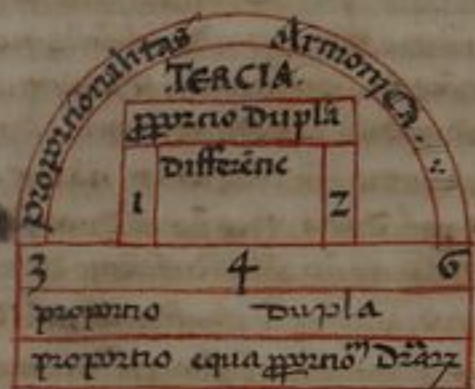 proporcionalitas Armonica
.TERCIA.
ꝓporcio dupla
differētie
1 2
3 4 6
proportio dupla
proportio equa ꝓportioꝫ